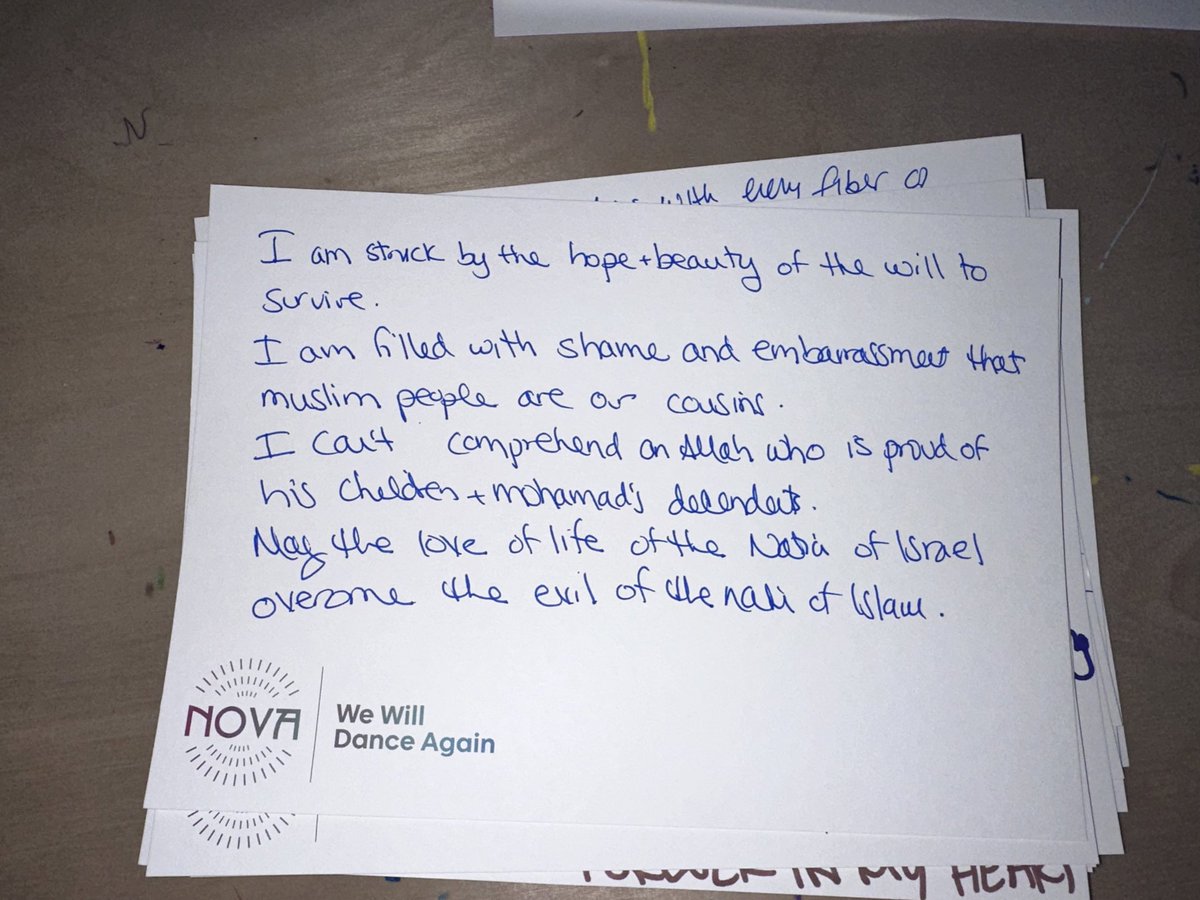 with every fiber of
I am struck by the hope + beauty of the will to
survive.
I am filled with shame and embarrassment that
muslim people are our cousins.
I can't comprehend an Allah who is proud of
his children + mohamad's decendents.
May the love of life of the Nation of Israel
overcome the evil of the nation of Islam.
NOVA
We Will
Dance Again
FOREVER IN MY HEART